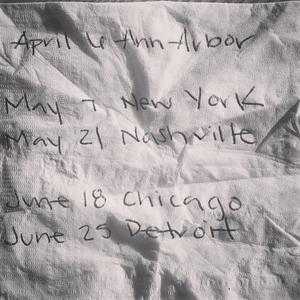 April 6 Ann Arbor
May 7 New York
May 21 Nashville
June 18 Chicago
June 25 Detroit